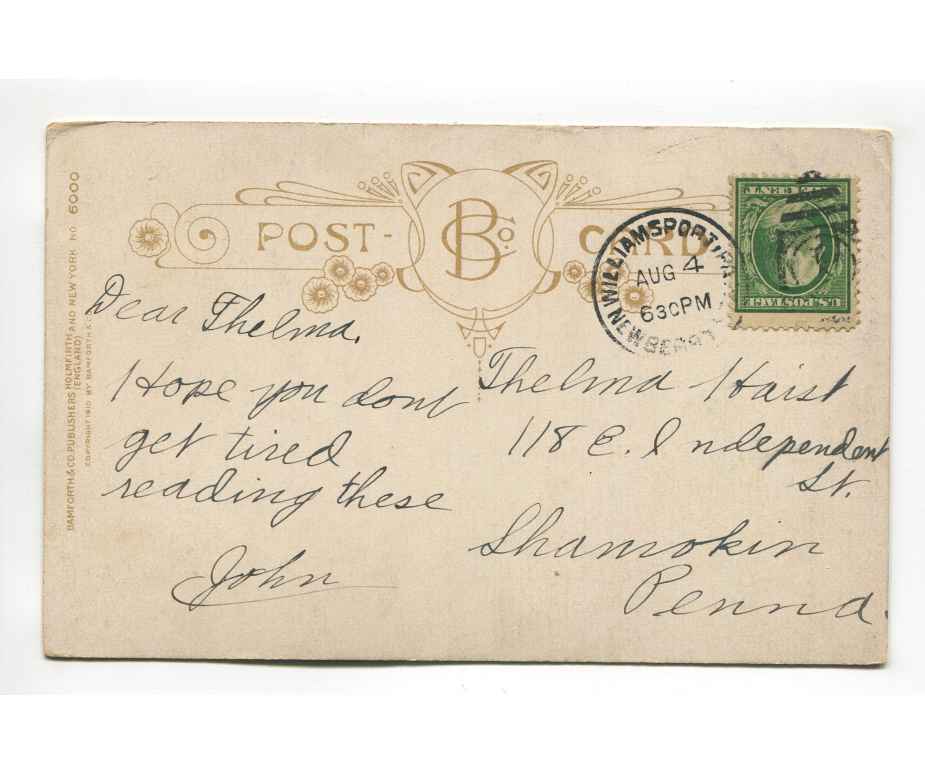 BAMFORTH & CO. PUBLISHERS HOLMFIRTH AND NEW YORK NO 6000
(ENGLAND)
COPYRIGHT 1910 BY BAMFORTH & Cº
POST- CARD
B Co.
WILLIAMSPORT, PA.
AUG 4
630 PM
U.S. POSTAGE
Dear Thelma.
Hope you dont
get tired
reading these
John
Thelma Haist
118 E. Independent
St.
Shamokin
Penna.